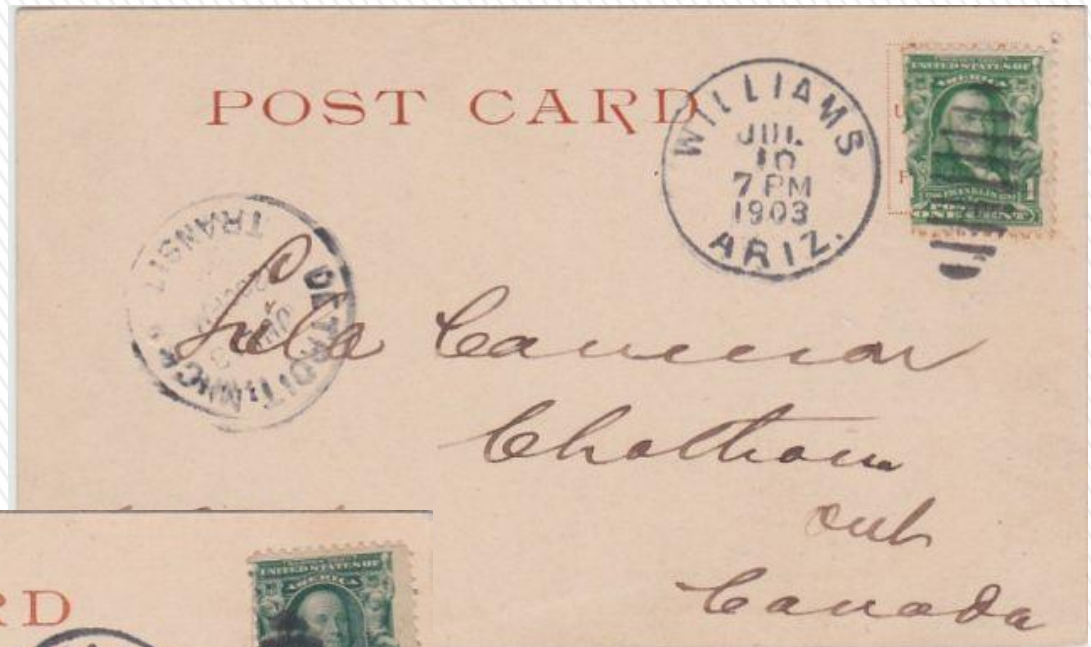 POST CARD
WILLIAMS
JUL
10
7 PM
1903
ARIZ.
UNITED STATES OF
AMERICA
1
1
ONE CENT
TRANSIT
DETROIT, MICH.
Lula Cameron
Chatham
Ont
Canada
RD
UNITED STATES OF
AMERICA